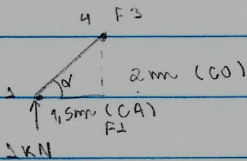 4 F3
α 2m (CO)
1 1,5m (CA)
F1
1KN